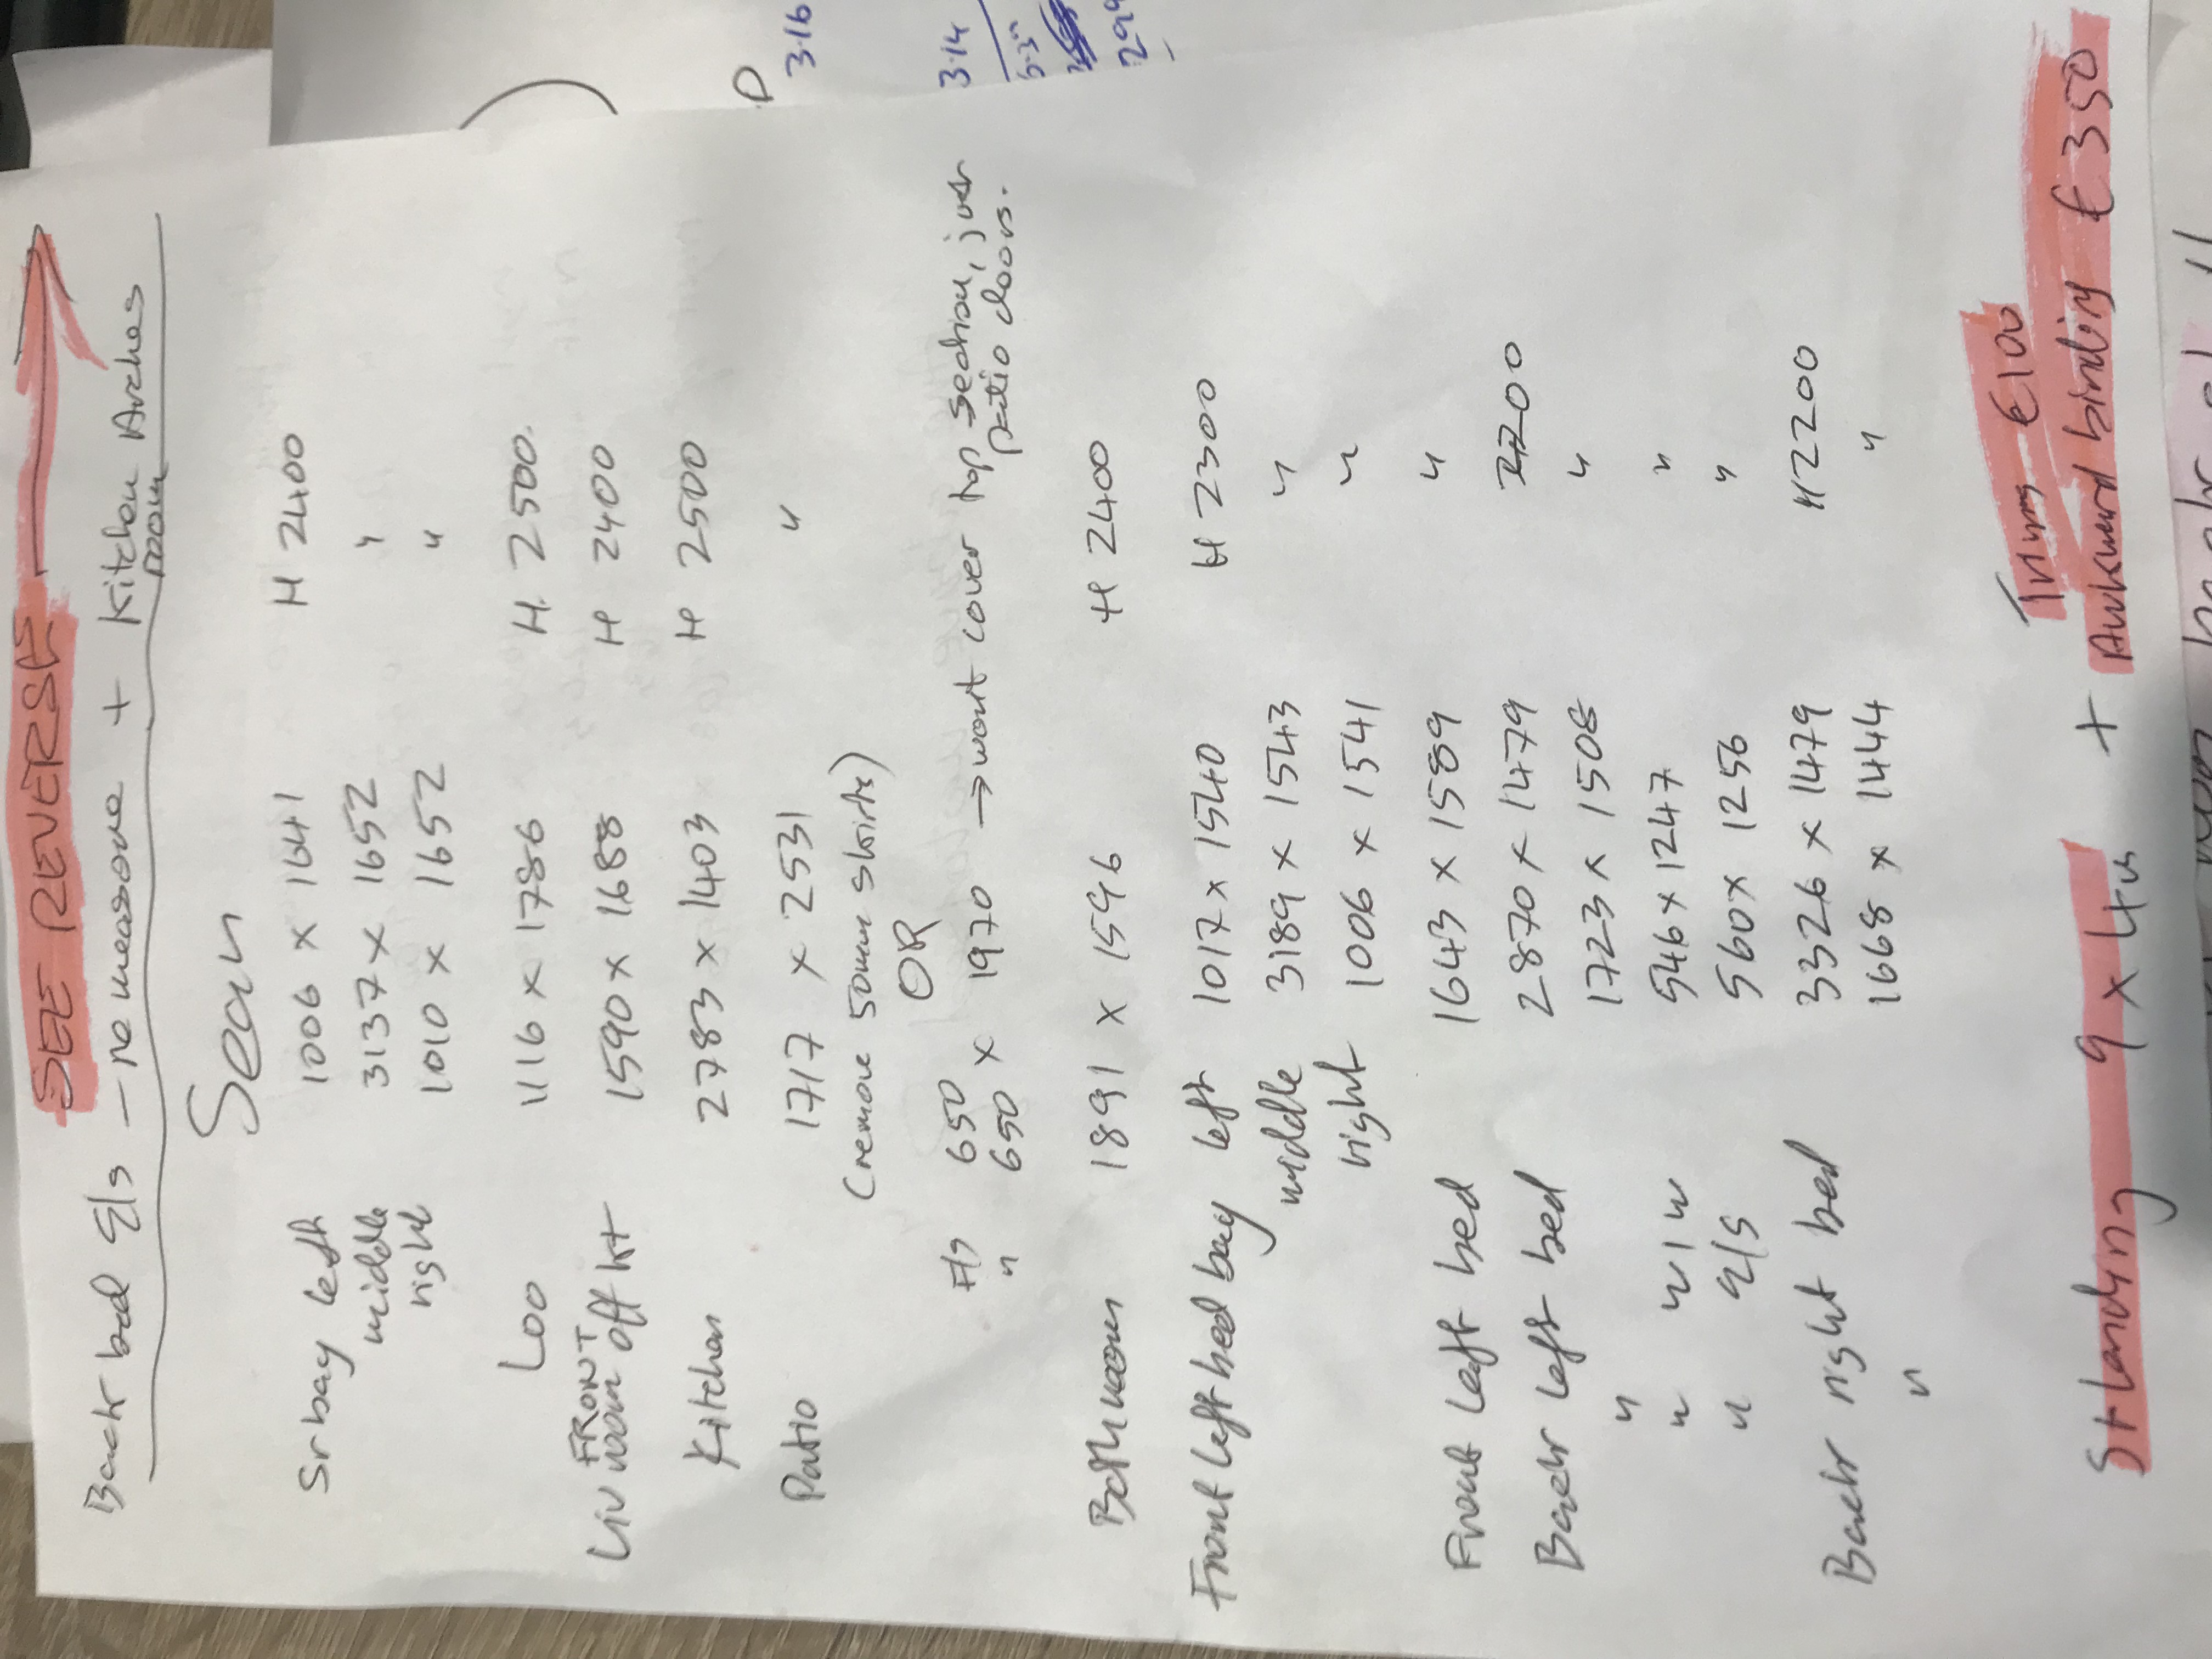 SEE REVERSE
Back bed E/s - remeasure + Kitchen Arches
room
Sean
Sr bay left 1006 x 1641 H 2400
middle 3137 x 1652 "
right 1010 x 1652 "
Loo 1116 x 1786 H 2500
FRONT
Liv room off kt 1590 x 1688 H 2400
Kitchen 2783 x 1403 H 2500
Patio 1717 x 2531 "
(remove 50mm skirts)
OR
F/s 650
" 650 x 1970 → wont cover top section, just
patio doors.
Bathroom 1891 x 1596 H 2400
Front left bed bay left 1017 x 1540 H 2300
middle 3189 x 1543 "
right 1006 x 1541 "
Front left bed 1643 x 1589 "
Back left bed 2870 x 1479 2200
" 1723 x 1508 "
" W/W 546 x 1247 "
" E/S 560 x 1256 "
Back right bed 3326 x 1479 H 2200
" 1668 x 1444 "
Trims €100
St landing 9 x 4m + Awkward binding € 350
3.16
3.14
299